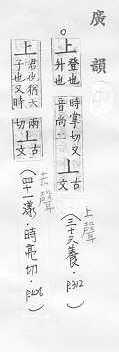 廣韻
上 登也升也 時掌切又音尚二 上 古文 (三十六養·P312)
上聲
上 君也猶天子也又時兩切 上 古文 (四十一漾·時亮切·P426)
去聲